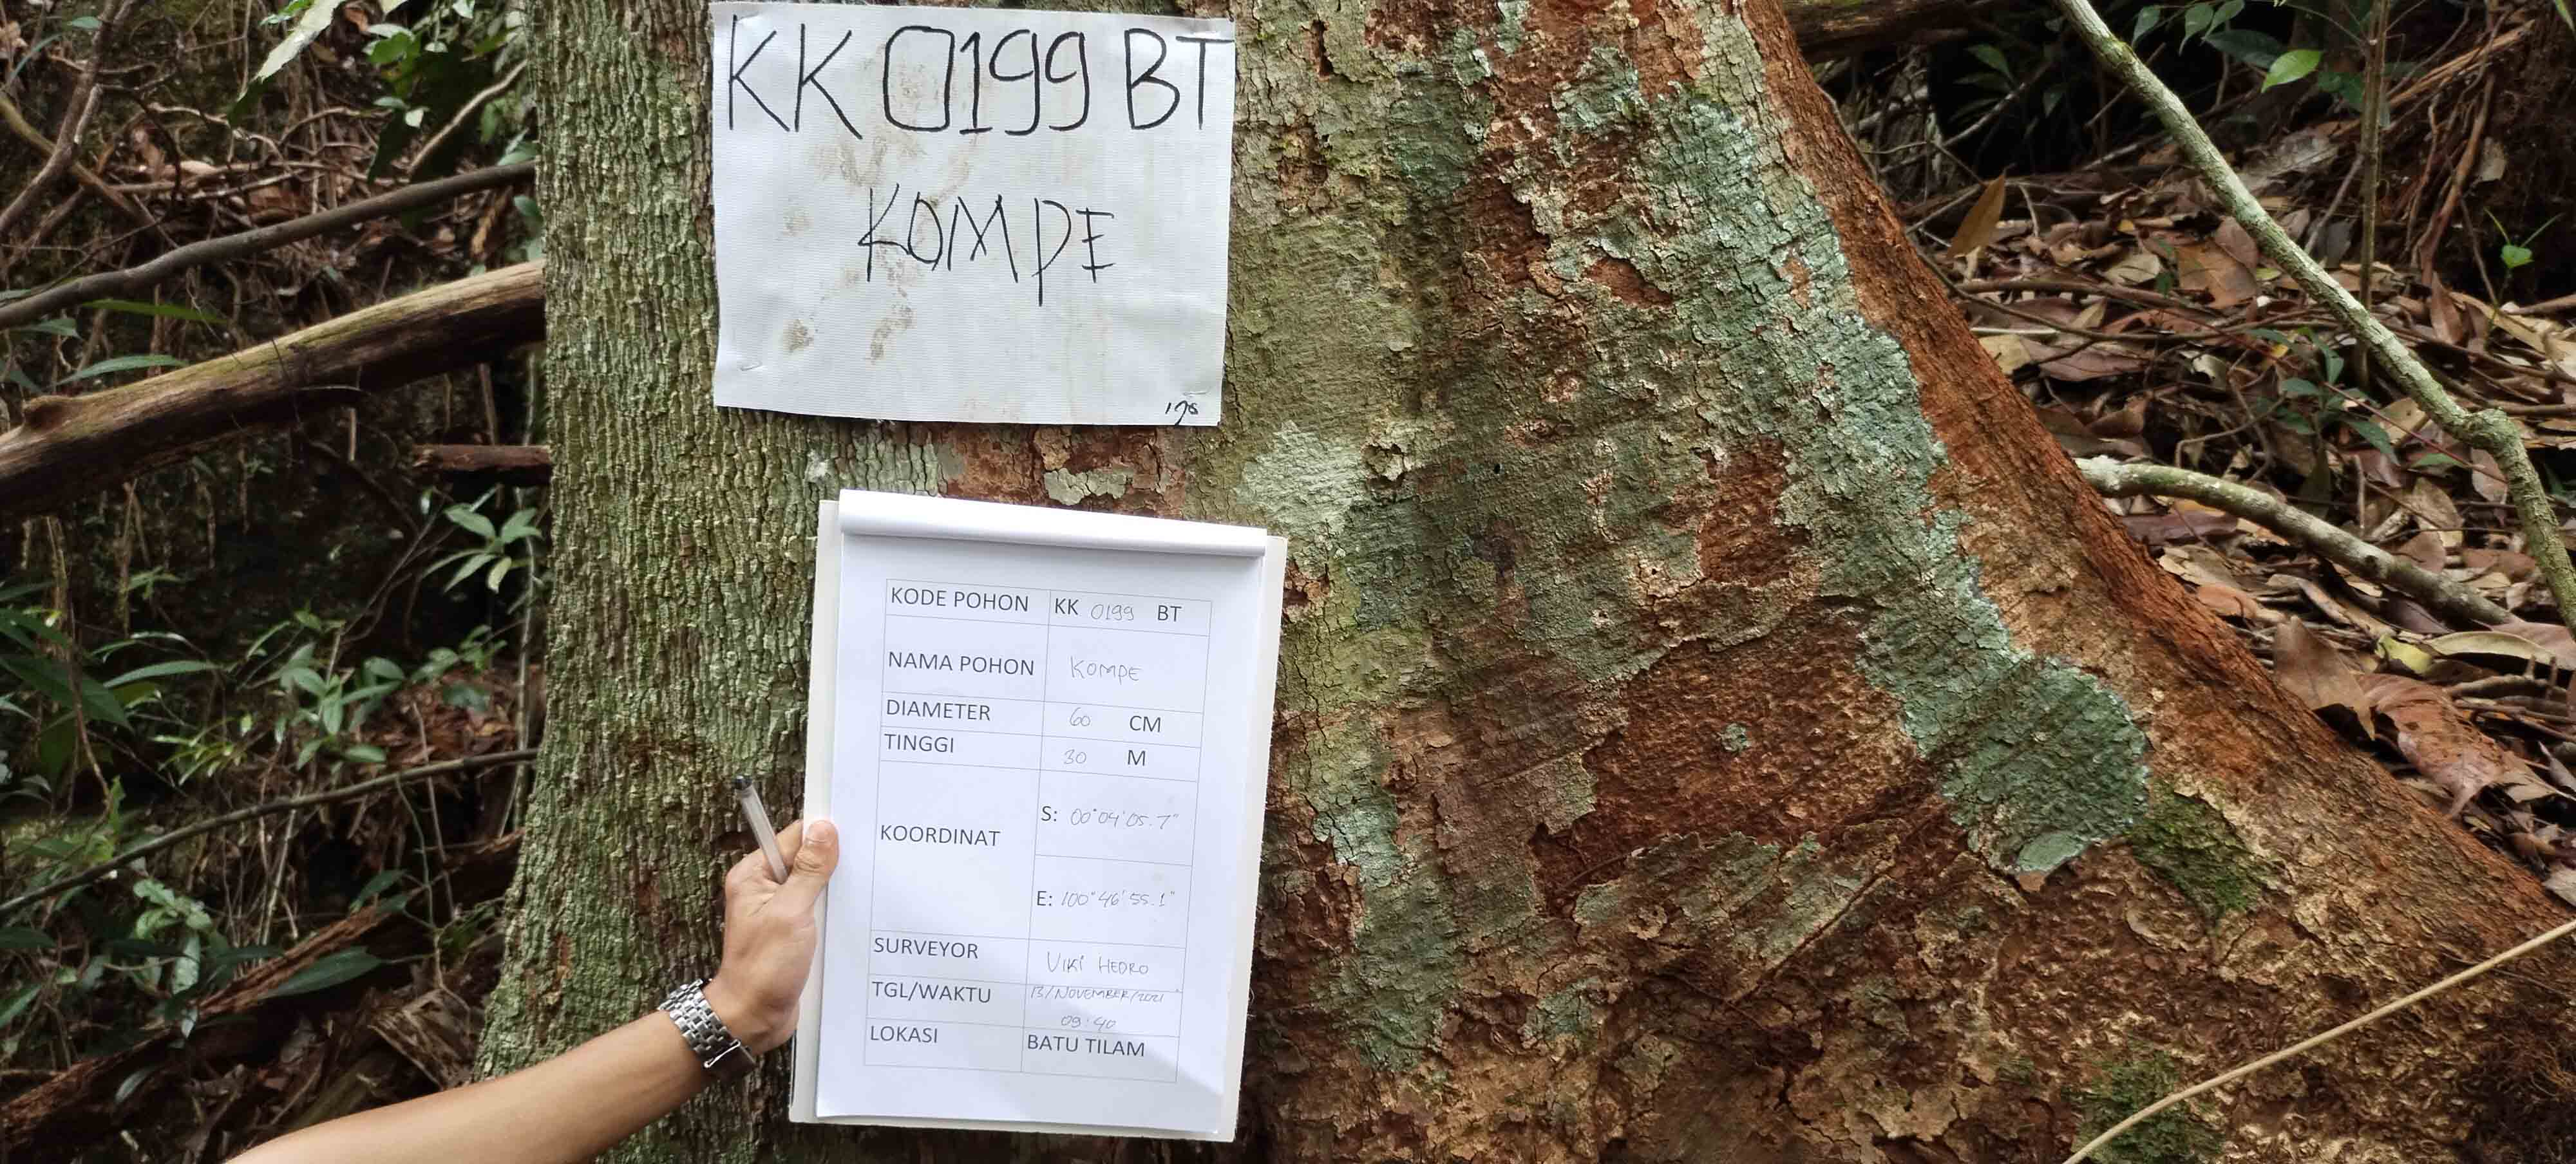 KK 0199 BT
KOMPE
198
KODE POHON KK 0199 BT
NAMA POHON KOMPE
DIAMETER 60 CM
TINGGI 30 M
KOORDINAT
S: 00°04'05.7"
E: 100°46'55.1"
SURVEYOR VIKI HEDRO
TGL/WAKTU 13/NOVEMBER/2021
09:40
LOKASI BATU TILAM